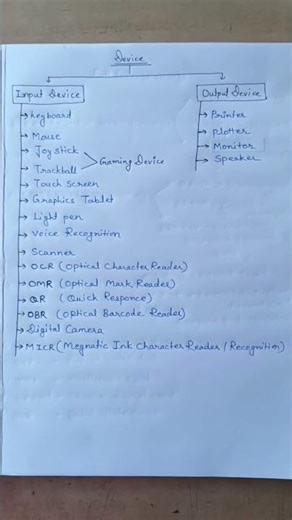 Device
Input Device
Output Device
Keyboard
Mouse
Joystick
Trackball
Gaming Device
Touch Screen
Graphics Tablet
Light pen
Voice Recognition
Scanner
OCR (Optical Character Reader)
OMR (Optical Mark Reader)
QR (Quick Responce)
OBR (Optical Barcode Reader)
Digital Camera
MICR (Megnatic Ink Character Reader / Recognition)
Printer
Plotter
Monitor
Speaker